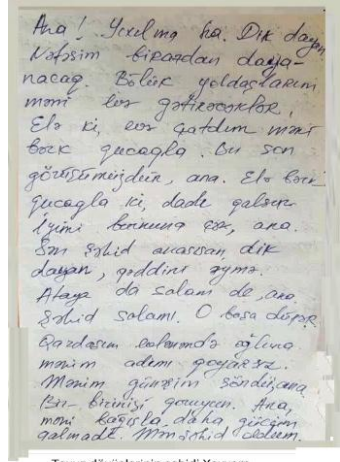 Ana! Yıxılma ha. Dik dayan
Nəfəsim birazdan daya-
nacaq. Bölük yoldaşlarım
məni evə gətirəcəklər,
Elə ki, evə çatdım məni
bərk qucaqla. Bu son
görüşümüzdür, ana. Elə bərk
qucaqla ki, dadı qalsın
İyimi burnuna çək, ana.
Sən şəhid anasısan dik
dayan, qəddini əymə.
Ataya da salam de, ana
Şəhid salamı. O başa düşər
Qardaşım gələndə oğluna
mənim adımı qoyarsız.
Mənim günəşim söndü, ana
Bir-birinizi qoruyun. Ana,
məni bağışla daha gücüm
qalmadı. Mən şəhid oldum.